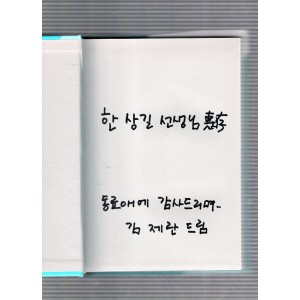 한 상길 선생님 惠存
동료애에 감사드리며..
김 제란 드림